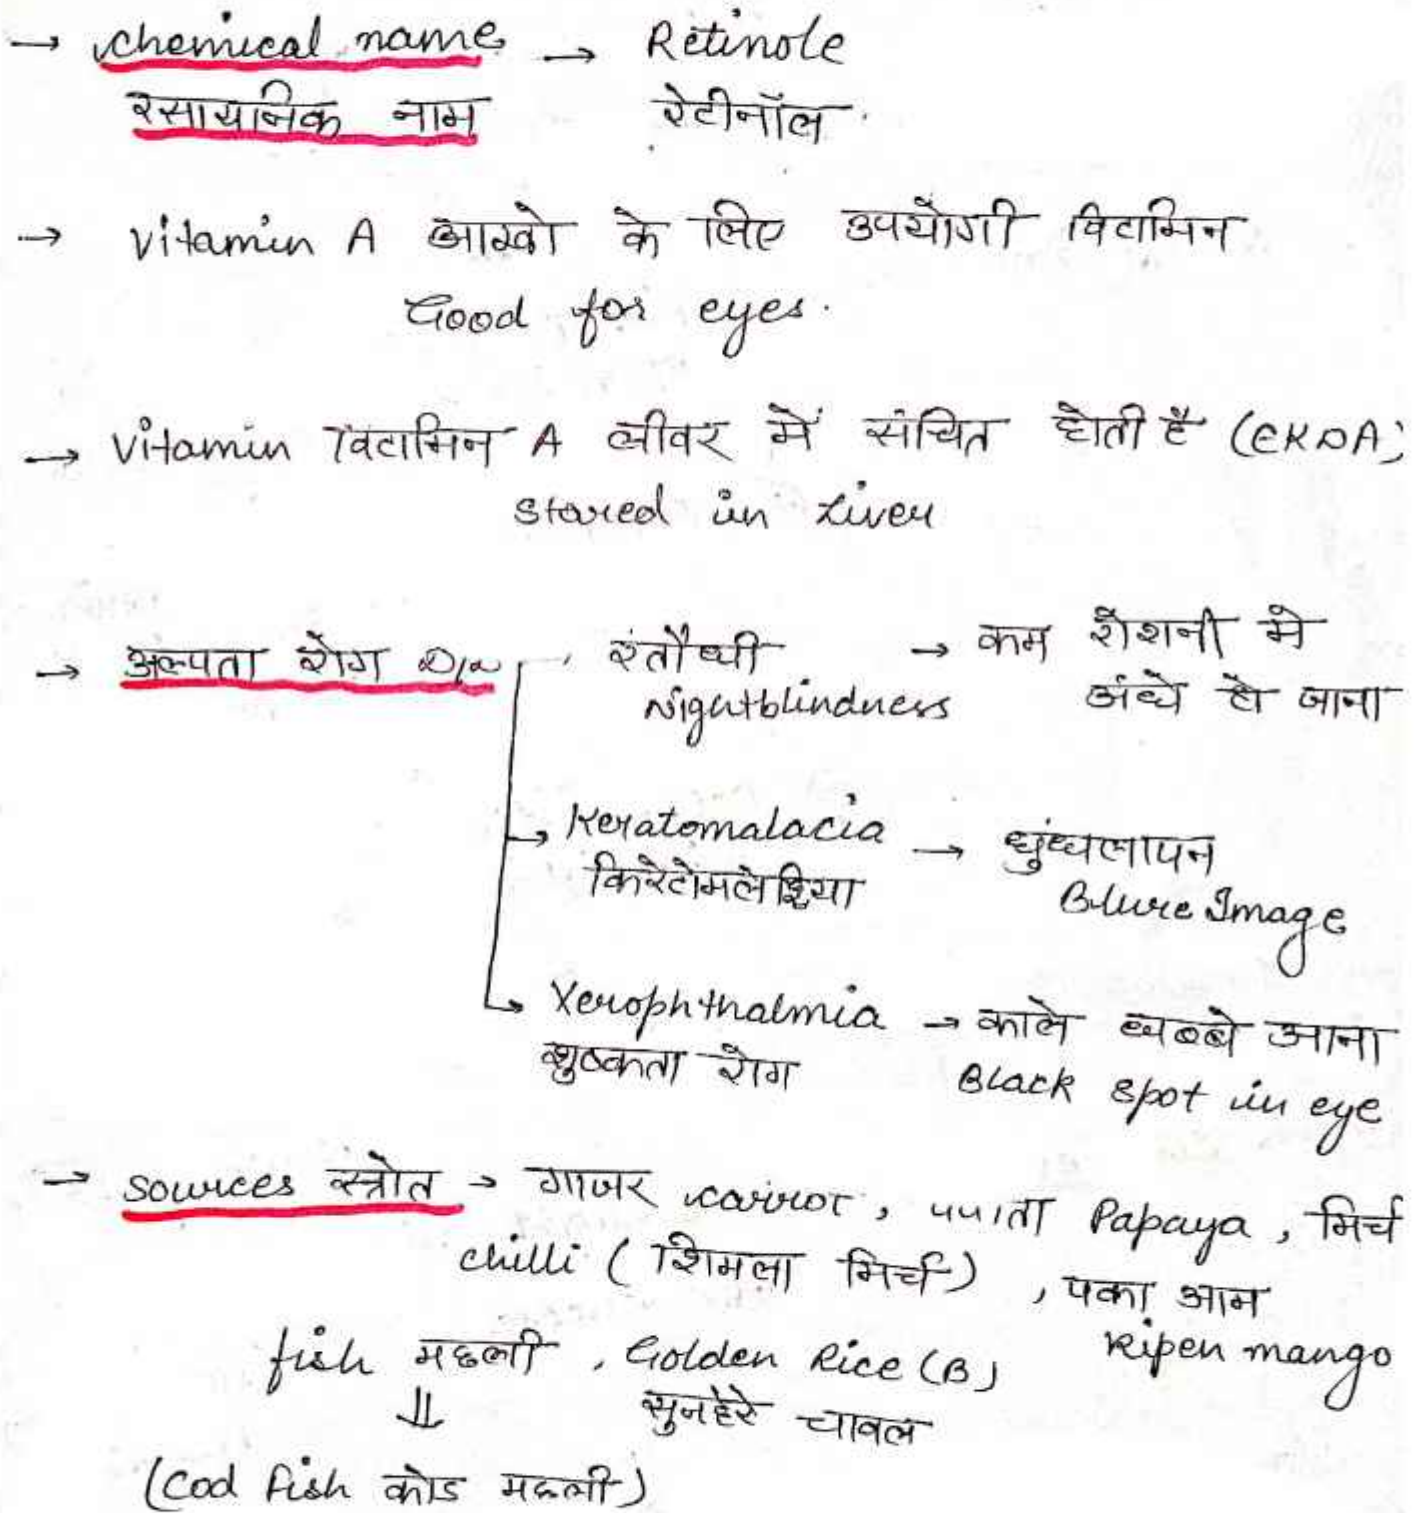 → chemical name → Retinole
रसायनिक नाम रेटीनॉल
→ Vitamin A आखो के लिए उपयोगी विटामिन
Good for eyes.
→ Vitamin विटामिन A लीवर में संचित होती है (EKDA)
Stored in Liver
→ अल्पता रोग रंतौधी → कम रोशनी मे
Nightblindness अंधे हो जाना
→ Keratomalacia → धुंधलापन
किरेटोमलेशिया Blure Image
→ Xerophthalmia → काले धब्बे आना
शुष्कता रोग Black spot in eye
→ sources स्त्रोत → गाजर carrot, पपीता Papaya, मिर्च
chilli (शिमला मिर्च), पका आम
Ripen mango
fish मछली, Golden Rice (B)
⇓ सुनहेरे चावल
(Cod Fish कोड मछली)